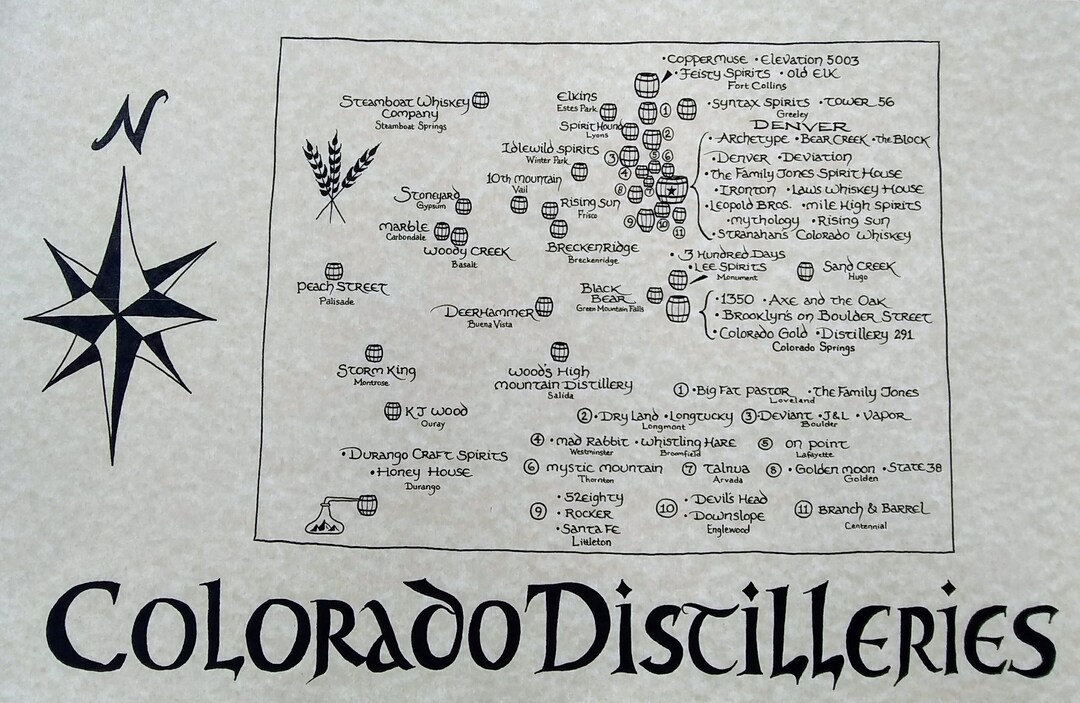 N
• Coppermuse • Elevation 5003
• Feisty Spirits • Old Elk
Fort Collins
Steamboat Whiskey
Company
Steamboat Springs
Elkins
Estes Park
• Syntax Spirits • Tower 56
Greeley
Spirit Hound
Lyons
Idlewild Spirits
Winter Park
10th Mountain
Vail
Stoneyard
Gypsum
Rising Sun
Frisco
Marble
Carbondale
Woody Creek
Basalt
Breckenridge
Breckenridge
1
2
3
4
5
6
7
8
9
10
11
Denver
• Archetype • Bear Creek • the Block
• Denver • Deviation
• The Family Jones Spirit House
• Ironton • Laws Whiskey House
• Leopold Bros. • Mile High Spirits
• Mythology • Rising Sun
• Stranahan's Colorado Whiskey
• 3 Hundred Days
• Lee Spirits
Monument
Sand Creek
Hugo
Peach Street
Palisade
Black
Bear
Green Mountain Falls
Deerhammer
Buena Vista
• 1350 • Axe and the Oak
• Brooklyn's on Boulder Street
• Colorado Gold • Distillery 291
Colorado Springs
Storm King
Montrose
Wood's High
Mountain Distillery
Salida
KJ Wood
Ouray
• Durango Craft Spirits
• Honey House
Durango
1 • Big Fat Pastor • The Family Jones
Loveland
2 • Dry Land • Longtucky
Longmont
3 • Deviant • J&L • Vapor
Boulder
4 • Mad Rabbit • Whistling Hare
Westminster Broomfield
5 On Point
Lafayette
6 Mystic Mountain
Thornton
7 Talnua
Arvada
8 • Golden Moon • State 38
Golden
9 • 52eighty
• Rocker
• Santa Fe
Littleton
10 • Devil's Head
• Downslope
Englewood
11 Branch & Barrel
Centennial
Colorado Distilleries